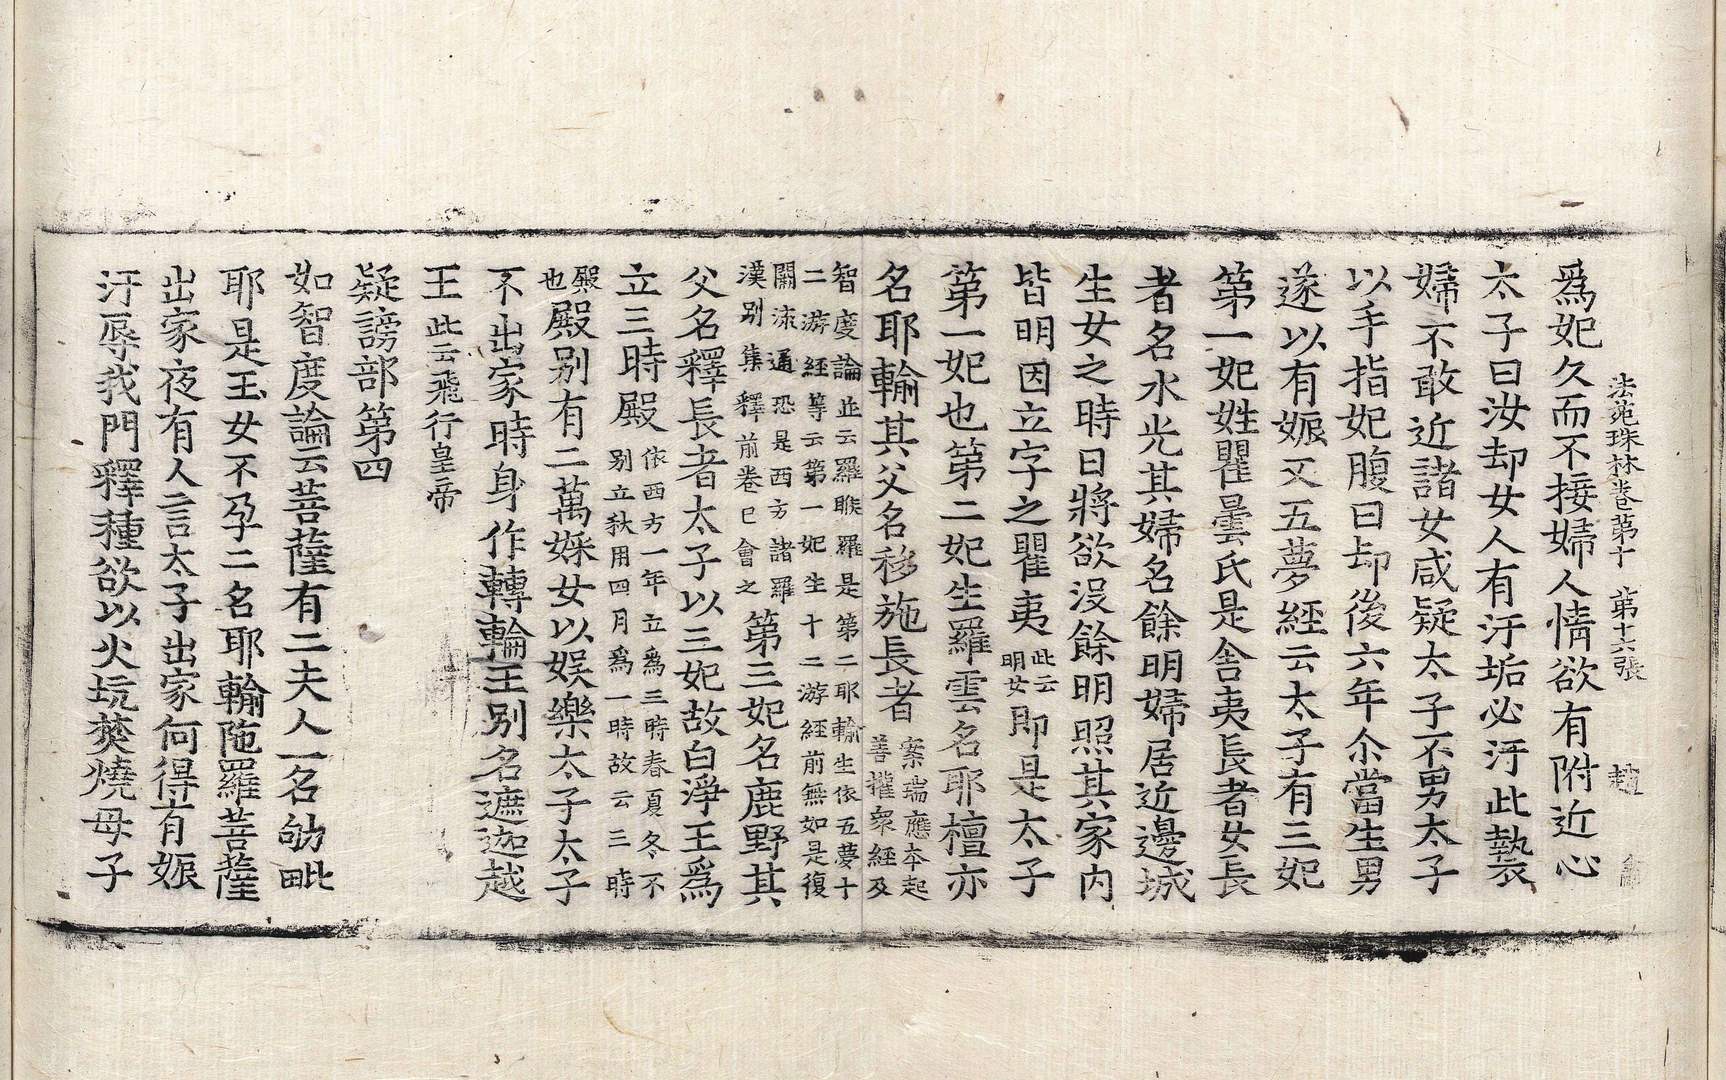 法苑珠林卷第十　第十六張　趙
爲妃久而不接婦人情欲有附近心
太子曰汝却女人有汙垢必汙此㲲
婦不敢近諸女咸疑太子不男太子
以手指妃腹曰却後六年尒當生男
遂以有娠又五夢經云太子有三妃
第一妃姓瞿曇氏是舍夷長者女長
者名水光其婦名餘明婦居近邊城
生女之時日將欲沒餘明照其家內
皆明因立字之瞿夷此云明女即是太子
第一妃也第二妃生羅雲名耶檀亦
名耶輸其父名移施長者案瑞應本起善權衆經及
智度論並云羅睺羅是第二耶輸生依五夢十
二游經等云第一妃生十二游經前無如是復
關流通恐是西方諸羅漢別集釋前卷已會之第三妃名鹿野其
父名釋長者太子以三妃故白淨王爲
立三時殿依西方一年立爲三時春夏冬不別立秋用四月爲一時故云三時
殿也殿別有二萬婇女以娛樂太子太子
不出家時身作轉輪王別名遮迦越
王此云飛行皇帝
疑謗部第四
如智度論云菩薩有二夫人一名劬毗
耶是玉女不孕二名耶輸陁羅菩薩
出家夜有人言太子出家何得有娠
汙辱我門釋種欲以火坑焚燒母子